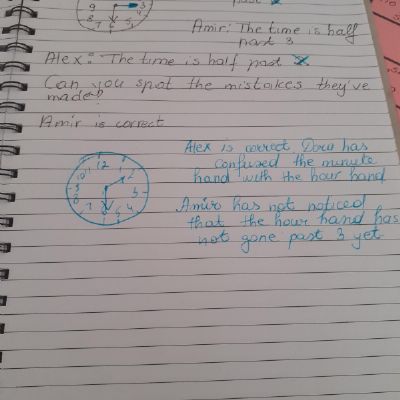 past
Amir: The time is half
past 3
Alex: The time is half past
Can you spot the mistakes they've
made?
Amir is correct
Alex is correct. Dora has
confused the minute
hand with the hour hand
Amir has not noticed
that the hour hand has
not gone past 3 yet